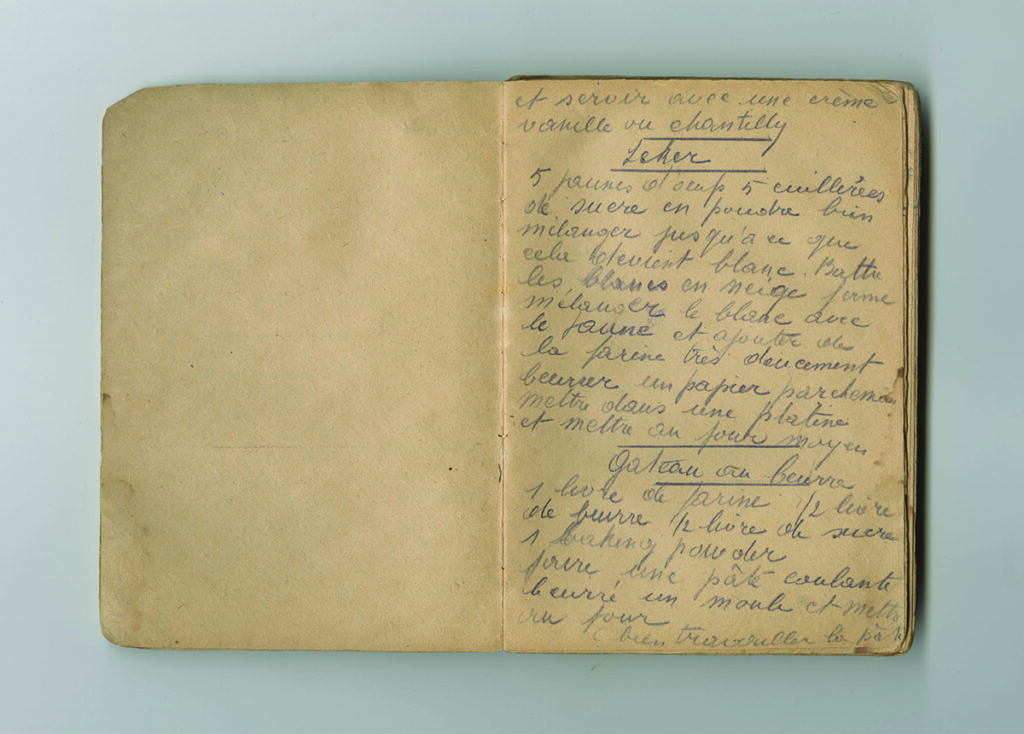 et servir avec une crème
vanille ou chantilly
Leker
5 jaunes d'oeufs 5 cuillerées
de sucre en poudre bien
mélanger jusqu'a ce que
cela devient blanc. Battre
les blancs en neige ferme
mélanger le blanc avec
le jaune et ajouter de
la farine très doucement
beurrer un papier parchemin
mettre dans une platine
et mettre au four moyen
Gateau au beurre
1 livre de farine 1/2 livre
de beurre 1/2 livre de sucre
1 baking powder
faire une pâte coulante
beurré un moule et mettre
au four
( bien travailler la pâte